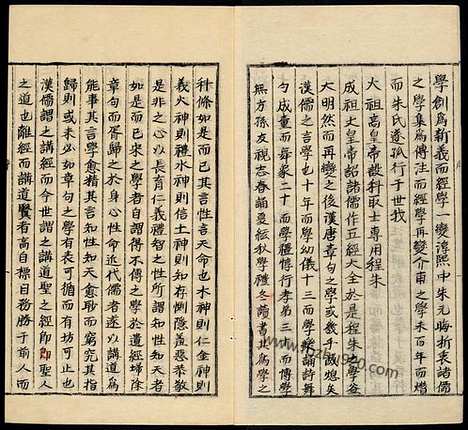 學創爲新義而經學一變淳熙中朱元晦折衷諸儒
之學集爲傳注而經學再變介甫之學未百年而熸
而朱氏遂孤行于世我
太祖高皇帝設科取士專用程朱
成祖文皇帝詔諸儒作五經大全於是程朱之學益
大明然而再變之後漢唐章句之學或幾乎滅熄矣
漢儒之言學也十年而學幼儀十三而學樂誦詩舞
勺成童而舞象二十而學禮惇行孝弟三十而博學
無方孫友視志春誦夏絃秋學禮冬讀書其爲學之
科條如是而已其言性言天命也木神則仁金神則
義火神則禮水神則信土神則知存惻隱羞惡恭敬
是非之心以長育仁義禮智之性性如是而知天者
如是而已宋之學者自謂得不傳之學於遺經掃除
章句而胥歸之於身心性命近代儒者遂以講道爲
能事其言學愈精其言知性知天愈眇而窮究其指
歸則或未必如章句之學有表可循而有坊可止也
漢儒謂之講經而今世謂之講道聖人之經即聖人
之道也離經而講道賢者高自標目務勝于前人而